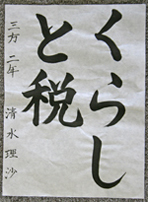 くらし
と税
三方 二年 清水理沙